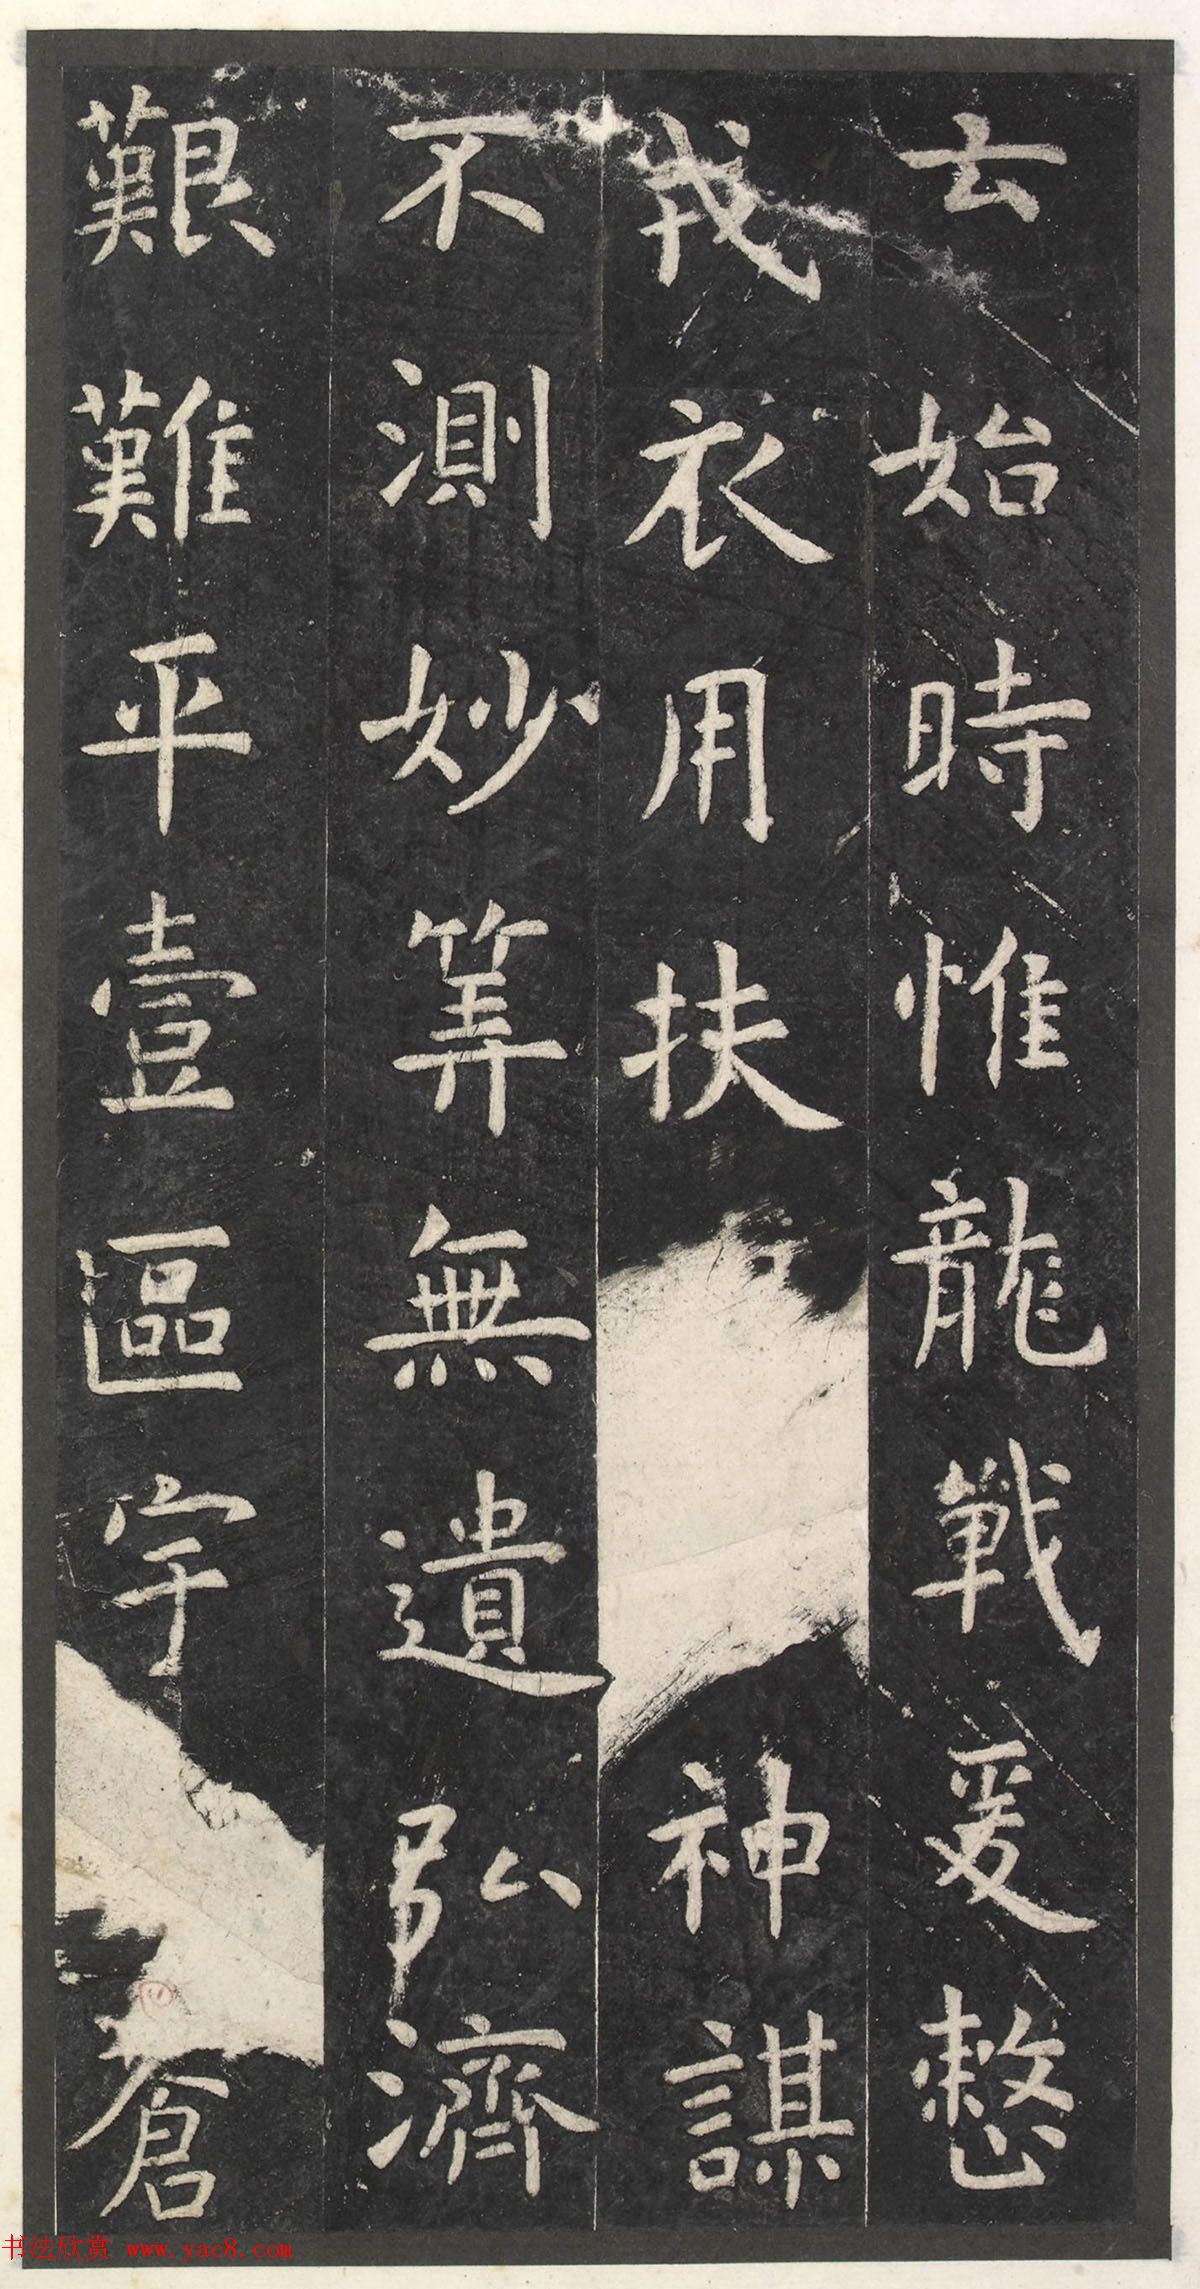 玄始時惟龍戰爰整
戎衣用扶神謀
不測妙筭無遺弘濟
艱難平壹區宇蒼
书法欣赏 www.yac8.com